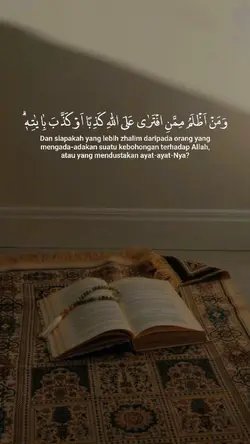 وَمَنْ اَظْلَمُ مِمَّنِ افْتَرٰى عَلَى اللّٰهِ كَذِبًا اَوْ كَذَّبَ بِاٰيٰتِهٖۗ
Dan siapakah yang lebih zhalim daripada orang yang
mengada-adakan suatu kebohongan terhadap Allah,
atau yang mendustakan ayat-ayat-Nya?